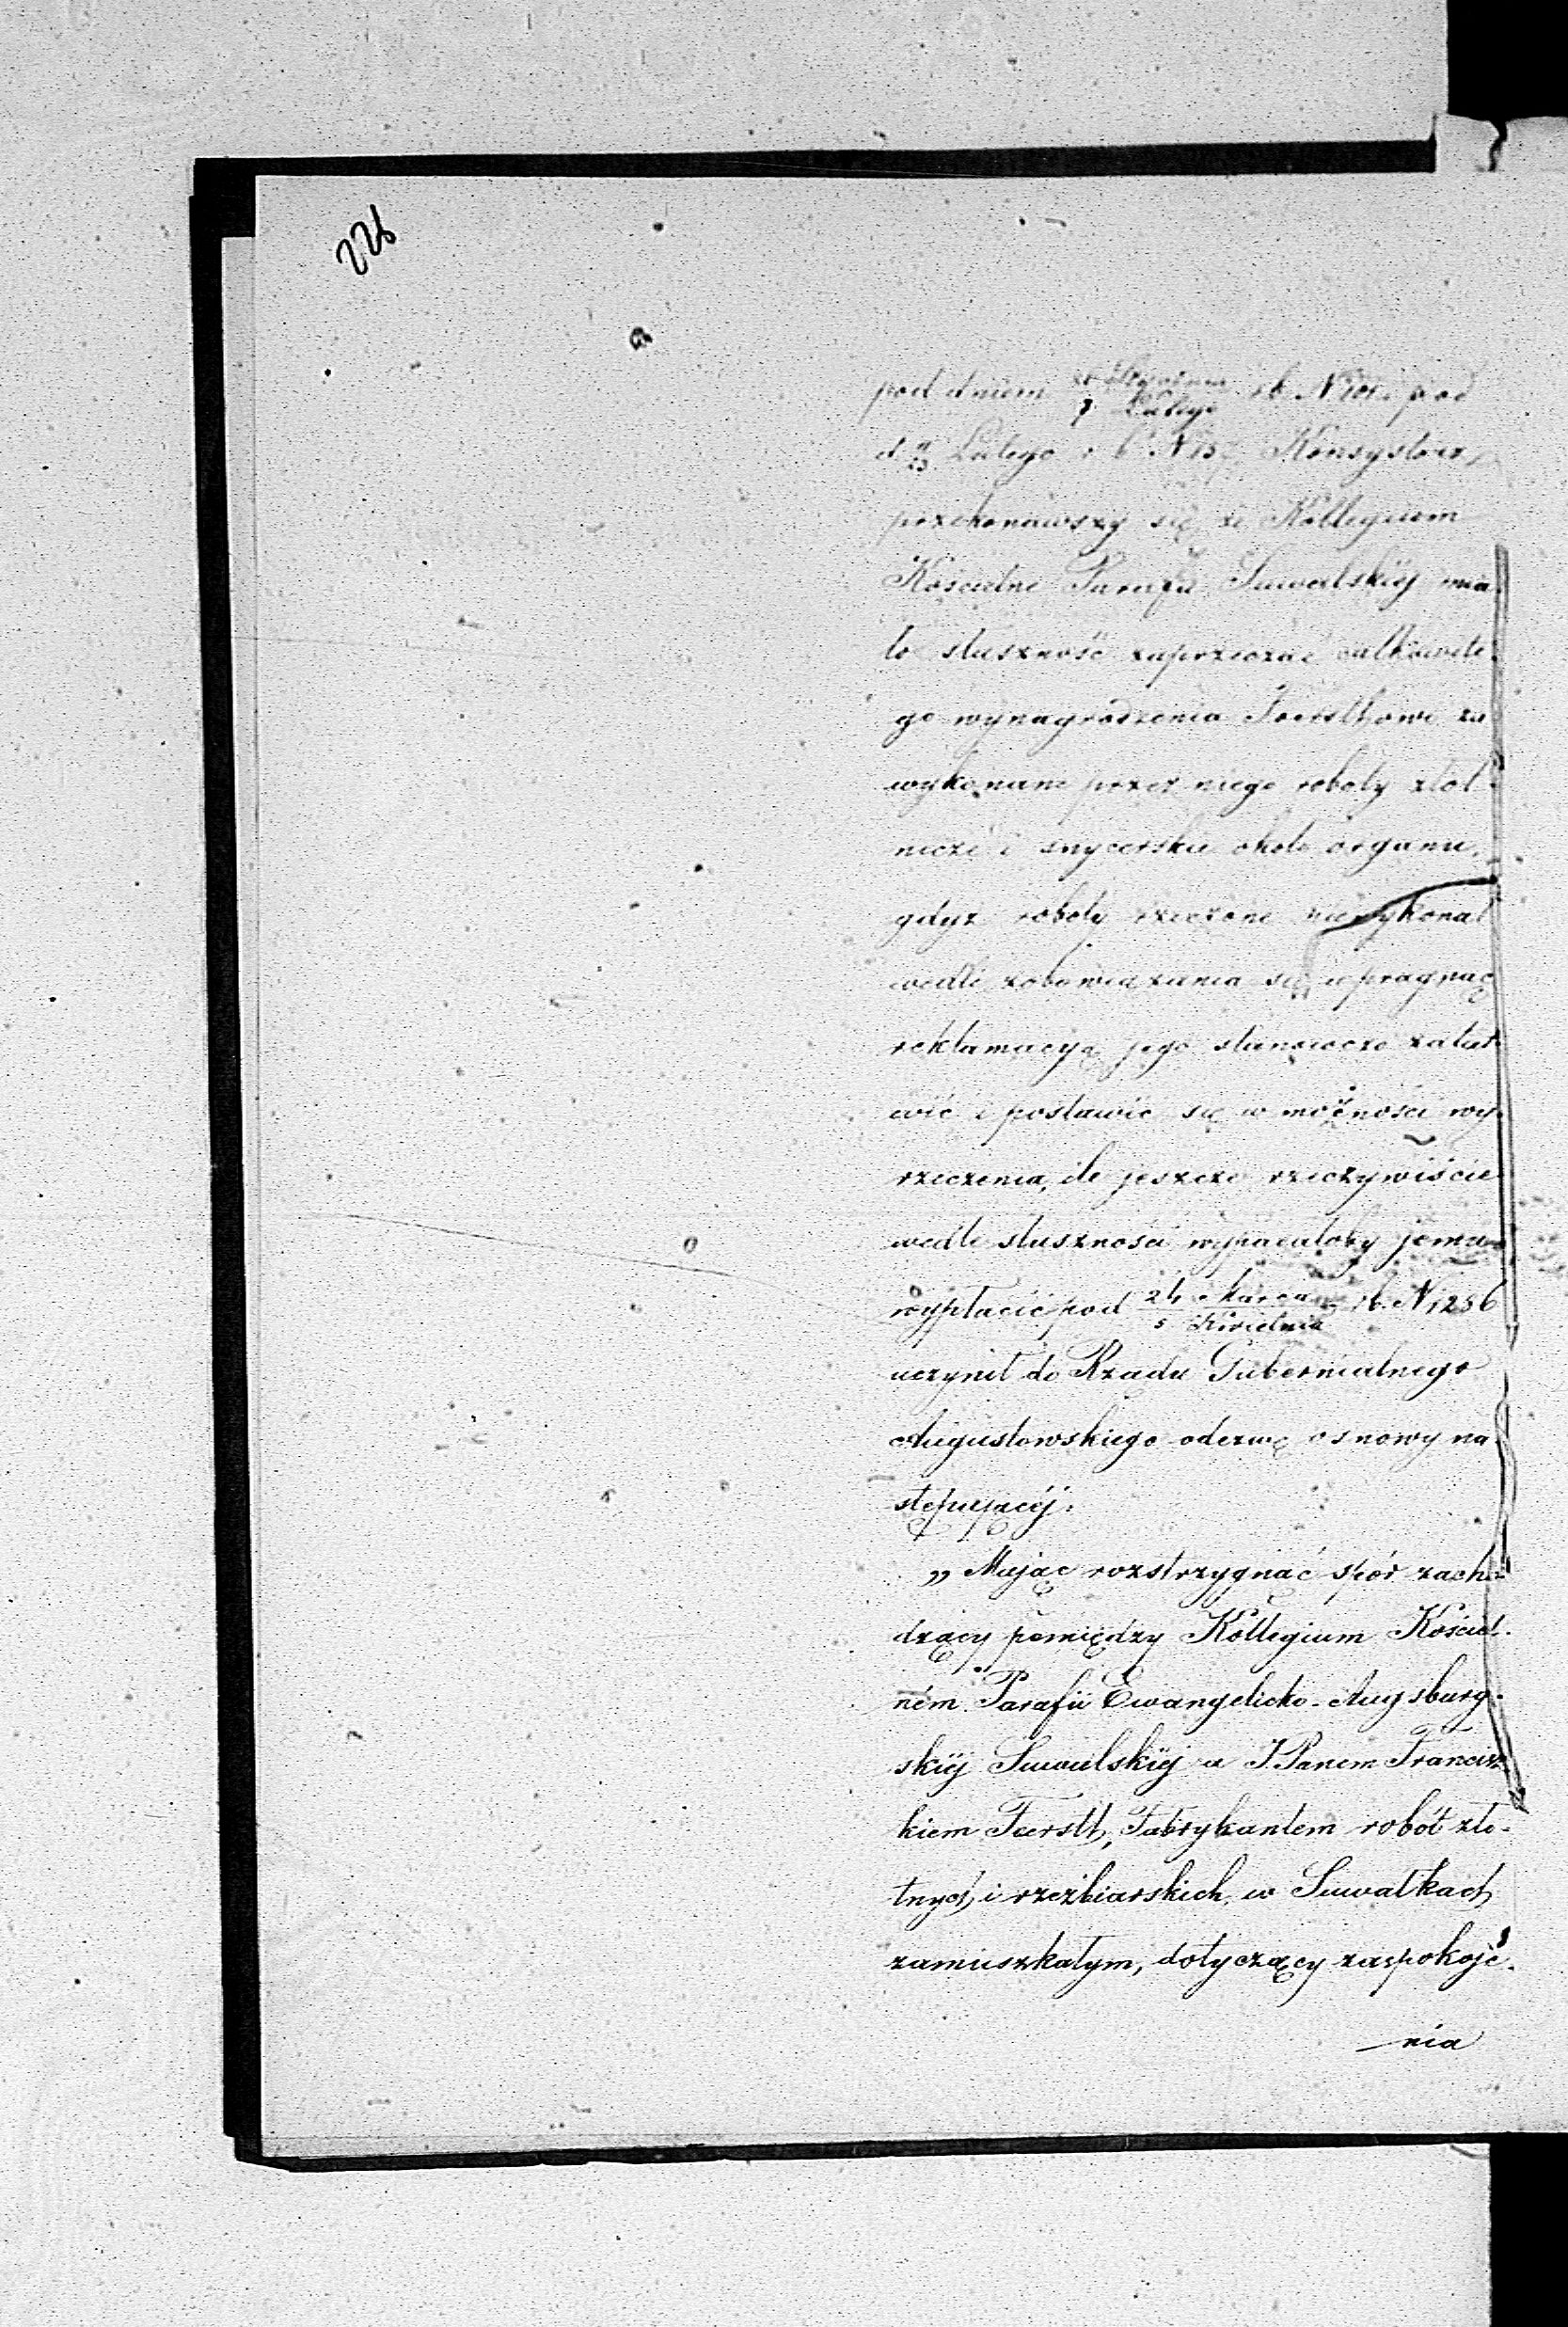 226
pod dniem Stycznia/7 Lutego rb. N 101. i pod
d. 11/23 Lutego r b. N Konsystorz
przekonawszy się że Kollegium
Kościelne Parafii Suwalskiéj mia-
ło słuszność zaprzeczać całkowite-
go wynagrodzenia Foerstkowi za
wykonane przez niego roboty złot-
nicze i snycerskie około organu,
gdyż roboty rzeczone niewykonał
wedle zobowiązania się, a pragnąc
reklamacyą jego stanowczo załat-
wić i postawić się w możności wy-
rzeczenia, ile jeszcze rzeczywiście
wedle słuszności wypadałoby jemu
wypłacić pod 24 Marca/5 Kwietnia rb. N 1256
uczynił do Rządu Gubernialnego
Augustowskiego odezwę osnowy na-
stępującéj:
„Mając rozstrzygnąć spór zacho-
dzący pomiędzy Kollegium Kościel-
ném Parafii Ewangelicko-Augsburg-
skiéj Suwalskiéj a J. Panem Francisz-
kiem Foerstl, Fabrykantem robót zło-
tnych i rzeźbiarskich, w Suwałkach
zamieszkałym, dotyczący zaspokoje-
nia